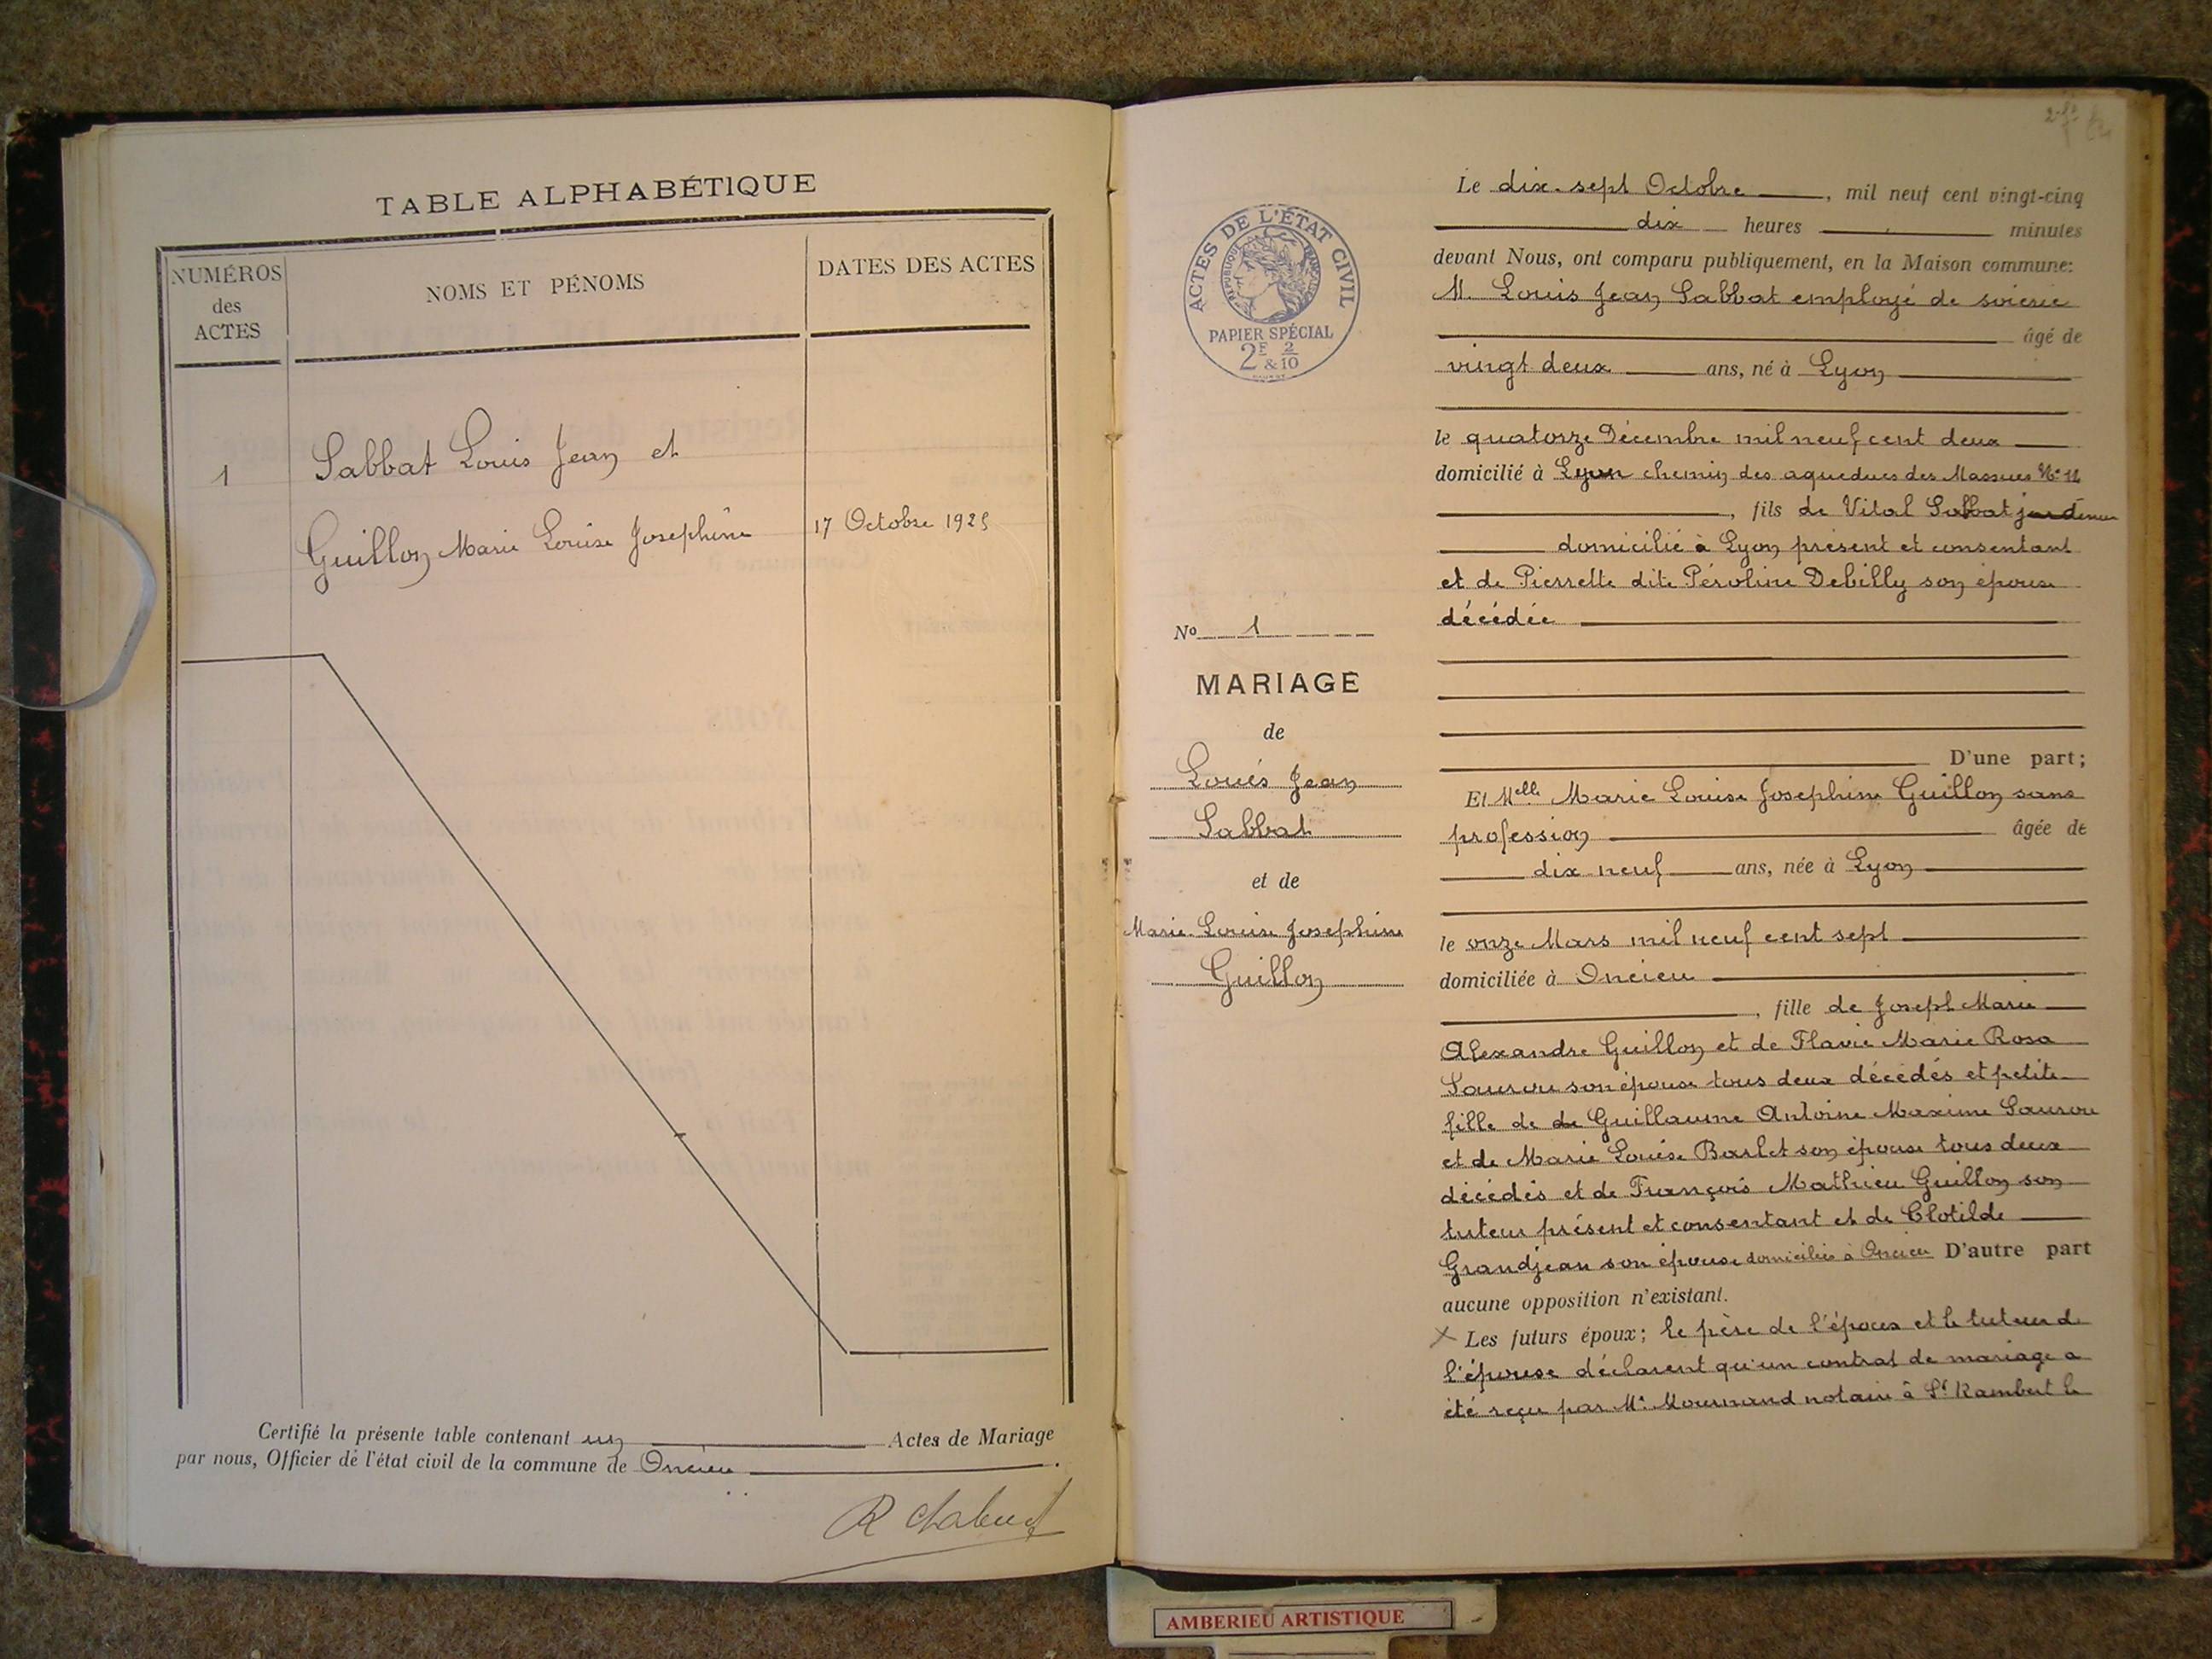 TABLE ALPHABÉTIQUE
NUMÉROS
des
ACTES
NOMS ET PÉNOMS
DATES DES ACTES
1
Sabbat Louis Jean et
Guillon Marie Louise Josephine
17 Octobre 1925
Certifié la présente table contenant un Actes de Mariage
par nous, Officier dé l'état civil de la commune de Oncieu.
R Chabud
ACTES DE L'ÉTAT CIVIL
RÉPUBLIQUE FRANÇAISE
PAPIER SPÉCIAL
2E & 2/10
No 1
MARIAGE
de
Louis Jean
Sabbat
et de
Marie Louise Josephine
Guillon
Le dix-sept Octobre, mil neuf cent vingt-cinq
dix heures minutes
devant Nous, ont comparu publiquement, en la Maison commune:
M. Louis Jean Sabbat employé de soierie
âgé de
vingt deux ans, né à Lyon
le quatorze Décembre mil neuf cent deux
domicilié à Lyon chemin des aqueducs des Massues No 11
, fils de Vital Sabbat
domicilié à Lyon présent et consentant
et de Pierrette dite Péroline Debilly son épouse
décédée
D'une part;
Et Melle Marie Louise Josephine Guillon sans
profession âgée de
dix neuf ans, née à Lyon
le onze Mars mil neuf cent sept
domiciliée à Oncieu
, fille de Joseph Marie
Alexandre Guillon et de Flavie Marie Rosa
son épouse tous deux décédés et petite
fille de de Guillaume Antoine Maxime
et de Marie Louise Barlet son épouse tous deux
décédés et de François Mathieu Guillon son
tuteur présent et consentant et de Clotilde
Grandjean son épouse domiciliés à Oncieu D'autre part
aucune opposition n'existant.
X Les futurs époux; le père de l'époux et le tuteur de
l'épouse déclarent qu'un contrat de mariage a
été reçu par Me notaire à St Rambert le
AMBERIEU ARTISTIQUE